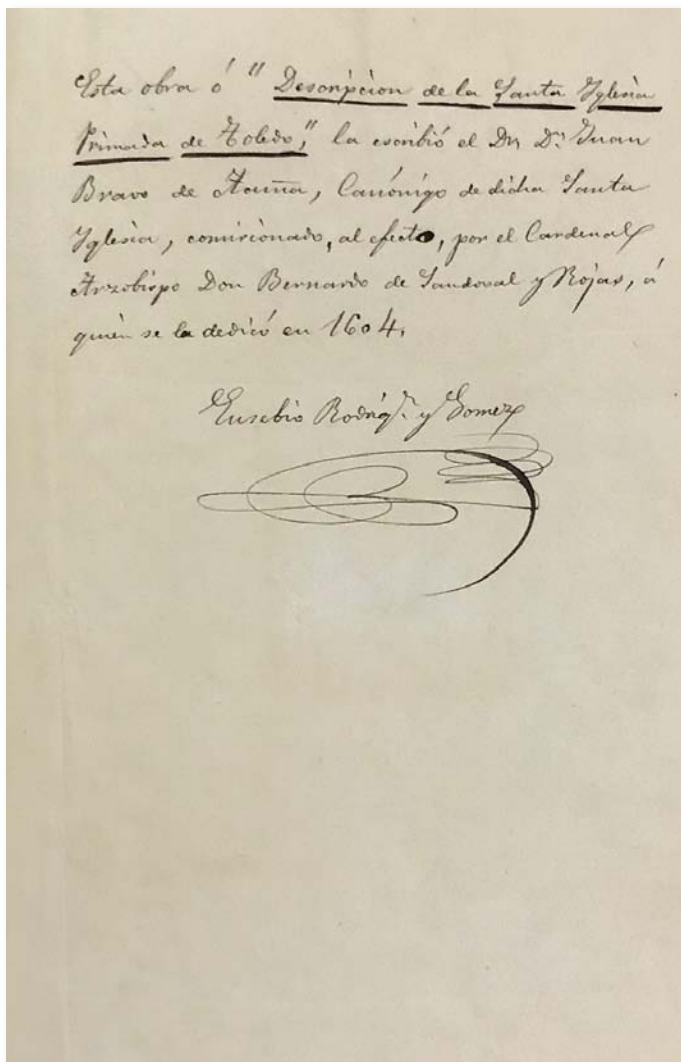 Esta obra ó "Descripcion de la Santa Yglesia
Primada de Toledo," la escribió el Dr. Dn. Juan
Bravo de Acuña, Canónigo de dicha Santa
Yglesia, comisionado, al efecto, por el Cardenal
Arzobispo Don Bernardo de Sandoval y Rojas, á
quién se la dedicó en 1604.
Eusebio Rodrigz. y Gomez